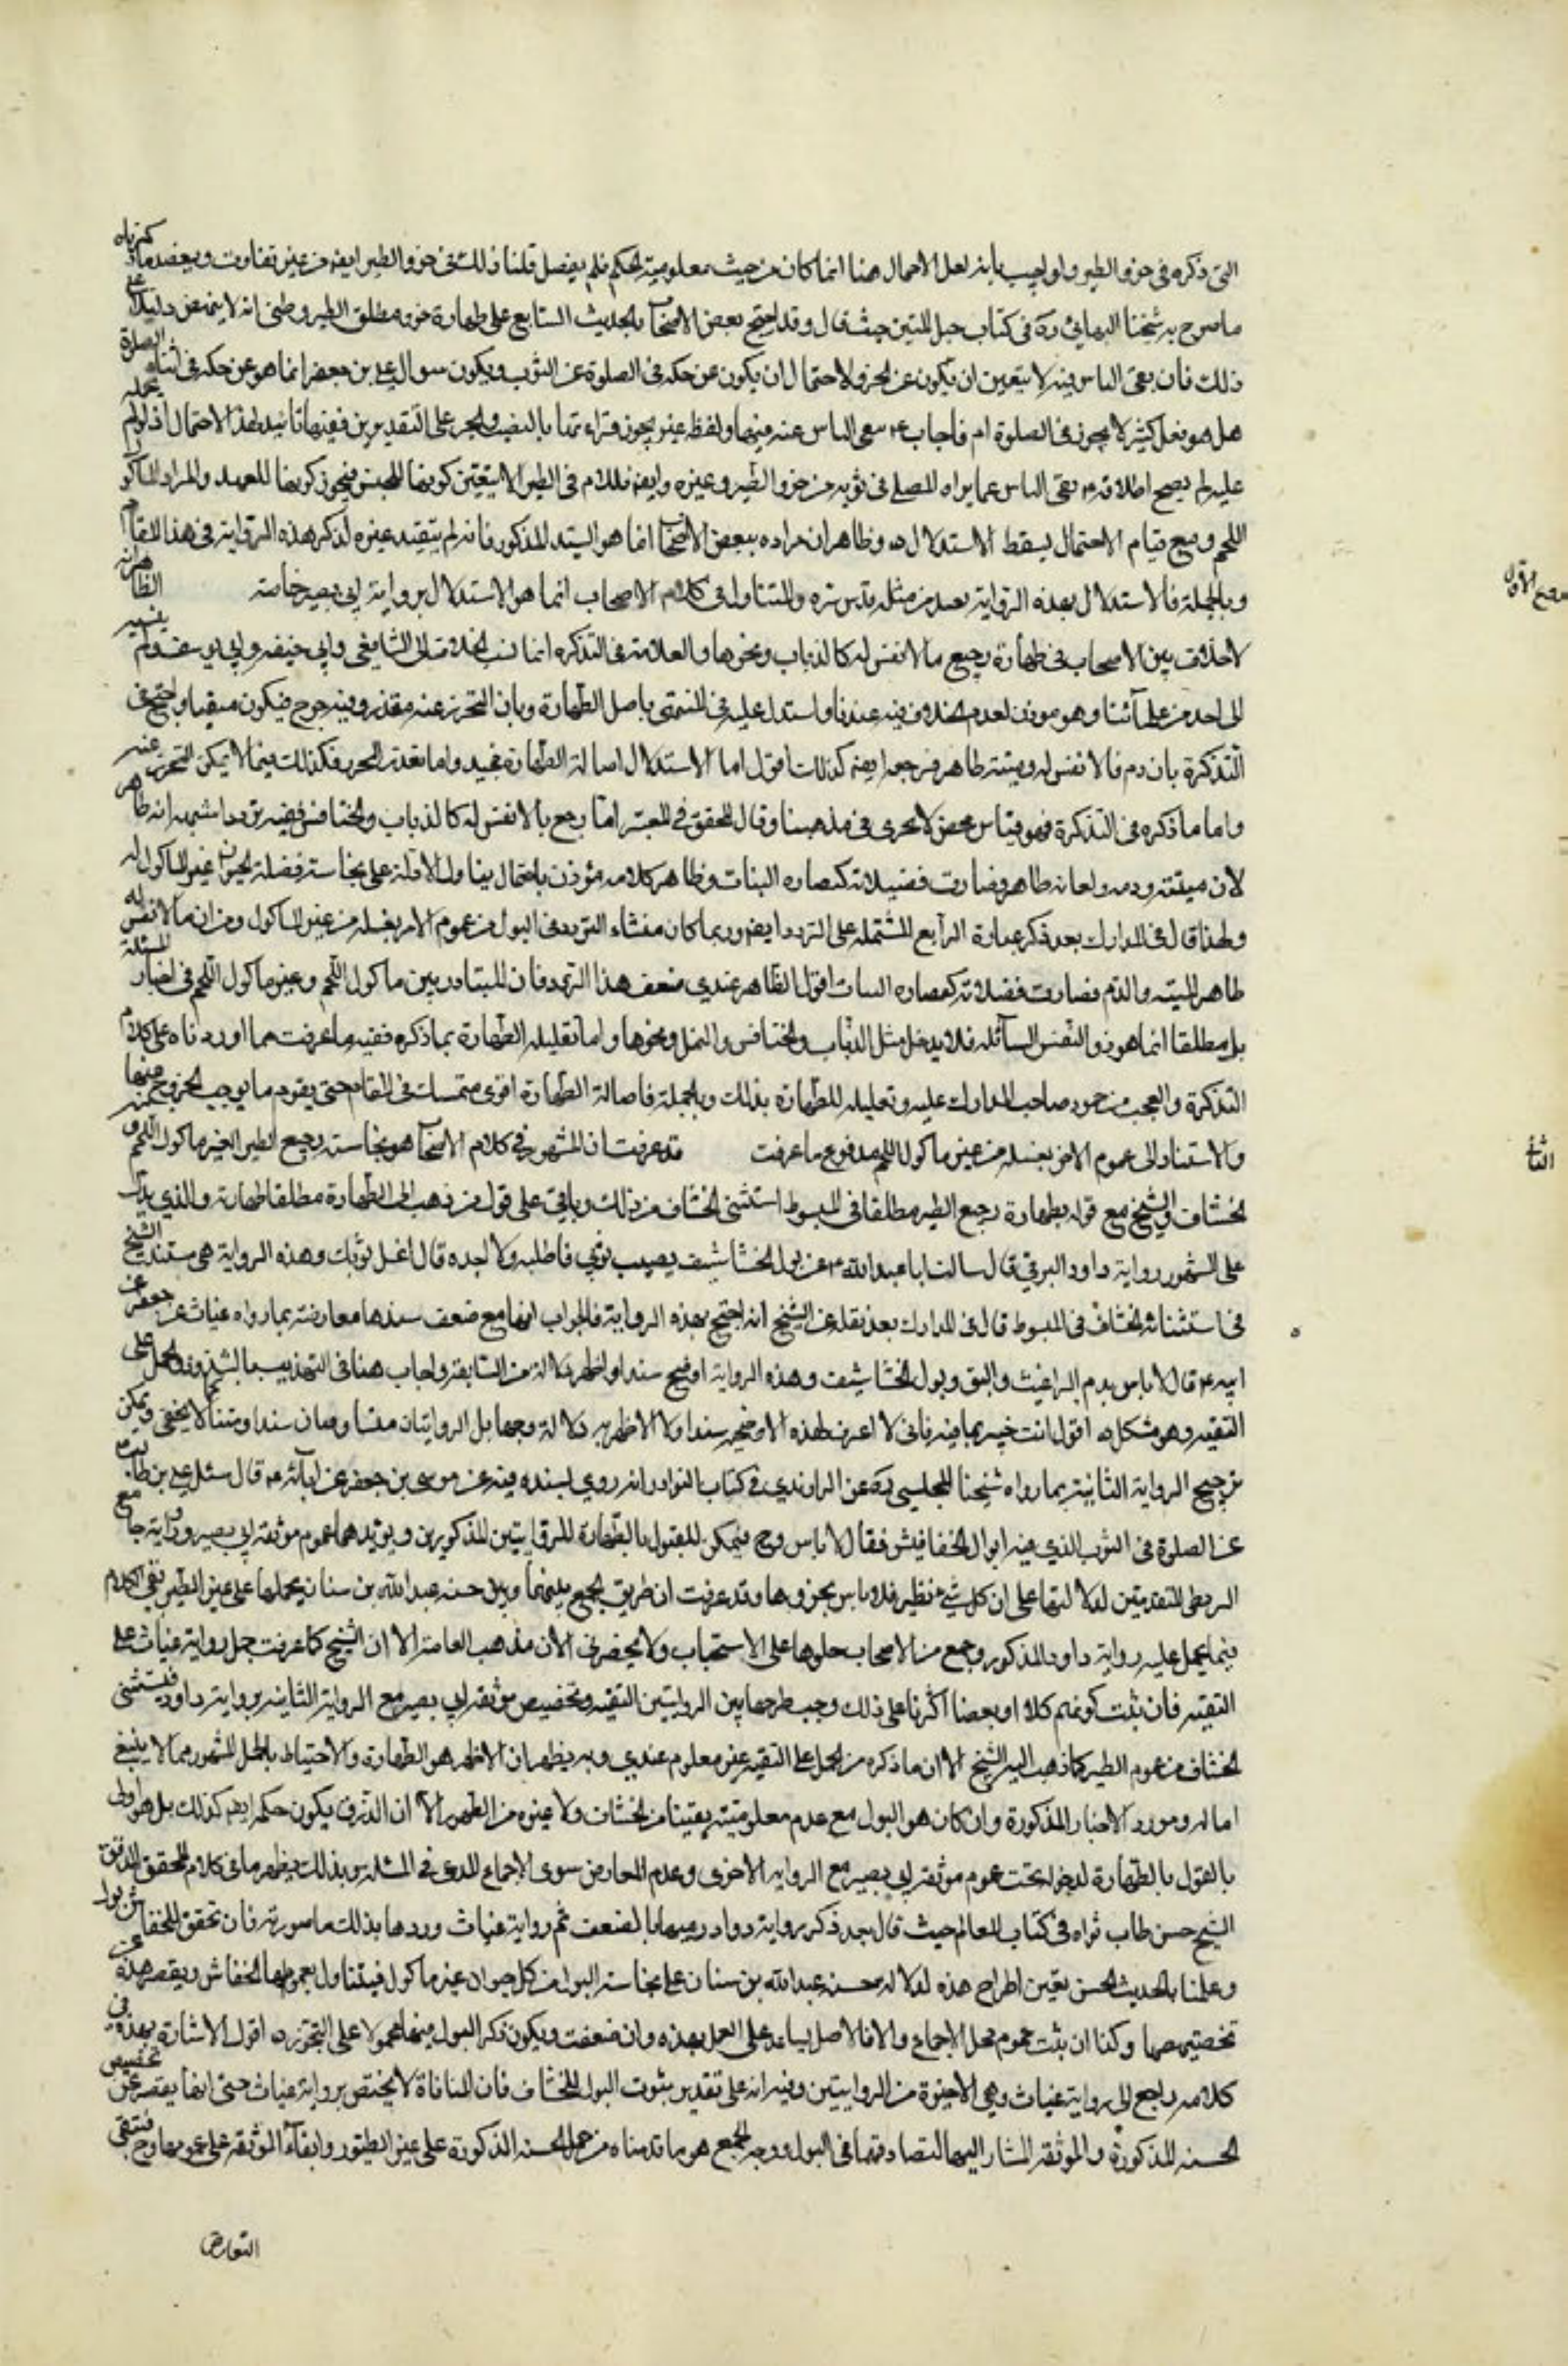 التى ذكره فى خرو الطير ولو اجيب بانه لعل الاجمال هنا انما كان من حيث معلومية الحكم فلم يفصل قلنا ذلك فى خرو الطير ايضا من غير تفاوت ويعضد ما ذكرناه
ما صرح به شيخنا البهائى ره فى كتاب حبل المتين حيث قال وقد احتج بعض الاصحاب بالحديث السابع على طهارة خرو مطلق الطير وظنى انه لا ينهض دليلا على
ذلك فان نفى الباس فيه لا يتعين ان يكون عن الخرو لاحتمال ان يكون عن حكه فى الصلوة عن الثوب ويكون سوال على بن جعفر انما هو عن حكه فى اثناء الصلوة
هل هو فعل كثير لا يجوز فى الصلوة ام لا فاجاب ع بنفى الباس عنه فيها ولفظ غيره يجوز قراءتها بالنصب والجر على التقديرين ففيها تاييد لهذا الاحتمال اذ لو لم يحمله
عليه لم يصح اطلاقه ع نفى الباس عما يراه المصلى فى ثوبه من خرو الطير وغيره وايضا فاللام فى الطير لا يتعين كونها للجنس فيجوز كونها للعهد والمراد الماكول
اللحم ومع قيام الاحتمال يسقط الاستدلال ه وظاهر ان مراده ببعض الاصحاب انما هو السيد المذكور فانه لم يتقدم غيره لذكر هذه الرواية فى هذا المقام
وبالجملة فالاستدلال بهذه الرواية بعيد من مثله قدس سره والمتداول فى كلام الاصحاب انما هو الاستدلال برواية ابى بصير خاصة الظاهر انه
لا خلاف بين الاصحاب فى طهارة رجيع ما لا نفس له كالذباب ونحوها والعلامة فى التذكره انما نسب الخلاف الى الشافعى وابى حنيفه وابى يوسف ولم ينسبه
الى احد من علمائنا وهو موذن بعدم الخلاف فيه عندنا واستدل عليه فى المنتهى باصل الطهارة وبان التحرز عنه متعذر وفيه حرج فيكون منفيا واحتج فى
التذكرة بان دم ما لا نفس له وميتته طاهر فرجيعه ايضا كذلك اقول اما الاستدلال باصالة الطهارة فجيد واما تعذر التحرز فكذلك فيما لا يمكن التحرز عنه
واما ما ذكره فى التذكرة فهو قياس محض لا يجرى فى مذهبنا وقال المحقق فى المعتبر اما رجيع ما لا نفس له كالذباب والخنافس ففيه تردد اشبهه انه طاهر
لان ميتته ودمه ولعابه طاهر فصارت فضلاته كعصارة النبات وظاهر كلامه مؤذن باحتمال تناول الادلة على نجاسة فضلة الحيوان غير الماكول له
ولهذا قال فى المدارك بعد ذكر عبارة الرابع المشتمله على التردد ايضا وربما كان منشاء التردد فى البول من عموم الامر بغسله من غير الماكول ومن ان ما لا نفس له
طاهر الميته والدم فصارت فضلاته كعصارة النبات اقول الظاهر عندى ضعف هذا التردد فان المتبادر بين ماكول اللحم وغير ماكول اللحم فى اخبار المسئلة
بل مطلقا انما هو ذو النفس السائله فلا يدخل مثل الذباب والخنافس والنمل ونحوها واما تعليله الطهارة بما ذكره ففيه ما عرفت مما اوردناه على كلام
التذكرة والعجب من جمود صاحب المدارك عليه وتعليله للطهارة بذلك وبالجملة فاصالة الطهارة اقوى متمسك فى المقام حتى يقوم ما يوجب الخروج عنها
والاستناد الى عموم الامر بغسله من غير ماكول اللحم مدفوع بما عرفت قد عرفت ان المشهور فى كلام الاصحاب هو نجاسة رجيع الطير الغير ماكول اللحم ومنه
الخشاف والشيخ مع قوله بطهارة رجيع الطير مطلقا فى المبسوط استثنى الخشاف من ذلك وباقى على قول من ذهب الى الطهارة مطلقا طهارته والذى يدل
على المشهور رواية داود البرقى قال سالت ابا عبد الله ع عن بول الخشاشيف يصيب ثوبى فاطلبه ولا اجده قال اغسل ثوبك وهذه الرواية هى مستند الشيخ
فى استثنائه الخشاف فى المبسوط قال فى المدارك بعد نقله عن الشيخ انه احتج بهذه الرواية فالجواب انها مع ضعف سندها معارضة بما رواه غياث عن جعفر عن
ابيه ع قال لا باس بدم البراغيث والبق وبول الخشاشيف وهذه الرواية اوضح سندا واظهر دلالة من السابقة واجاب عنها فى التهذيب بالشذوذ والحمل على
التقية وهو مشكل ه اقول انت خبير بما فيه فانى لا اعرف لهذه الاوضحيه سندا ولا الاظهريه دلالة وجها بل الروايتان متساويتان سندا ومتنا كما لا يخفى ويمكن
ترجيح الرواية الثانية بما رواه شيخنا المجلسى ره عن الراوندى فى كتاب النوادر انه روى بسنده فيه عن موسى بن جعفر عن ابائه ع قال سئل على بن ابى طالب
عن الصلوة فى الثوب الذى فيه ابوال الخفافيش فقال لا باس وح فيمكن القول بالطهارة للروايتين المذكورين ويويدهما عموم موثقه ابى بصير ورواية جامع
البزنطى المتقدمتين لدلالتهما على ان كل شى يطير فلا باس بخروه وقد عرفت ان طريق الجمع بينهما وبين حسنه عبد الله بن سنان بحملها على غير الطير بقى الكلام
فيما يحمل عليه رواية داود المذكور وجمع من الاصحاب حملوها على الاستحباب ولا يحضرنى الان مذهب العامة الا ان الشيخ كما عرفت حمل رواية غياث على
التقيه فان ثبت كونهم كلا او بعضا اكثرنا على ذلك وجب طرحها بين الروايتين التقيه وتخصيص موثقه ابى بصير مع الرواية الثانيه برواية داود فيستثنى
الخشاف من عموم الطير كما ذهب اليه الشيخ الا ان ما ذكره من الحمل على التقيه غير معلوم عندى وبه يظهر ان الاظهر هو الطهارة والاحتياط بالعمل المشهور مما لا ينبغى
اهماله ومورد الاخبار المذكورة وان كان هو البول مع عدم معلوميته يقينا من الخشاف ولا غيره من الطيور الا ان الذرق يكون حكمه ايضا كذلك بل هو اولى
بالقول بالطهارة لدخوله تحت عموم موثقه ابى بصير مع الرواية الاخرى وعدم المعارض سوى الاجماع المدعى فى المسئله وبذلك يظهر ما فى كلام المحقق المدقق
الشيخ حسن طاب ثراه فى كتاب المعالم حيث قال بعد ذكر رواية داود ورميها بالضعف ثم رواية غياث وردها بذلك ما صورته فان تحقق للخفاش بول
وعملنا بالحديث الحسن تعين اطراح هذه لدلالة حسنه عبد الله بن سنان على نجاسة البول من كل حيوان غير ماكول فيتناول بعمومها الخفاش ويقصر هذه عن
تخصيصها وكذا ان ثبت عموم محل الاجماع والا فالاصل يساعد على العمل بهذه وان ضعفت ويكون ذكر البول فيها محمولا على التجوز ه اقول الاشارة بهذه فى
كلامه راجع الى رواية غياث وهى الاخيرة من الروايتين وفيه انه على تقدير ثبوت البول للخشاف فان المنافاة لا يختص برواية غياث حتى انها يقصر عن تخصيص
الحسنه المذكورة والموثقه المشار اليها لتصادقهما فى البول ووجه الجمع هو ما قدمناه من حمل الحسنه المذكورة على غير الطيور وابقاء الموثقه على عمومها وح فينتفى
التعارض
الاول
الثانى